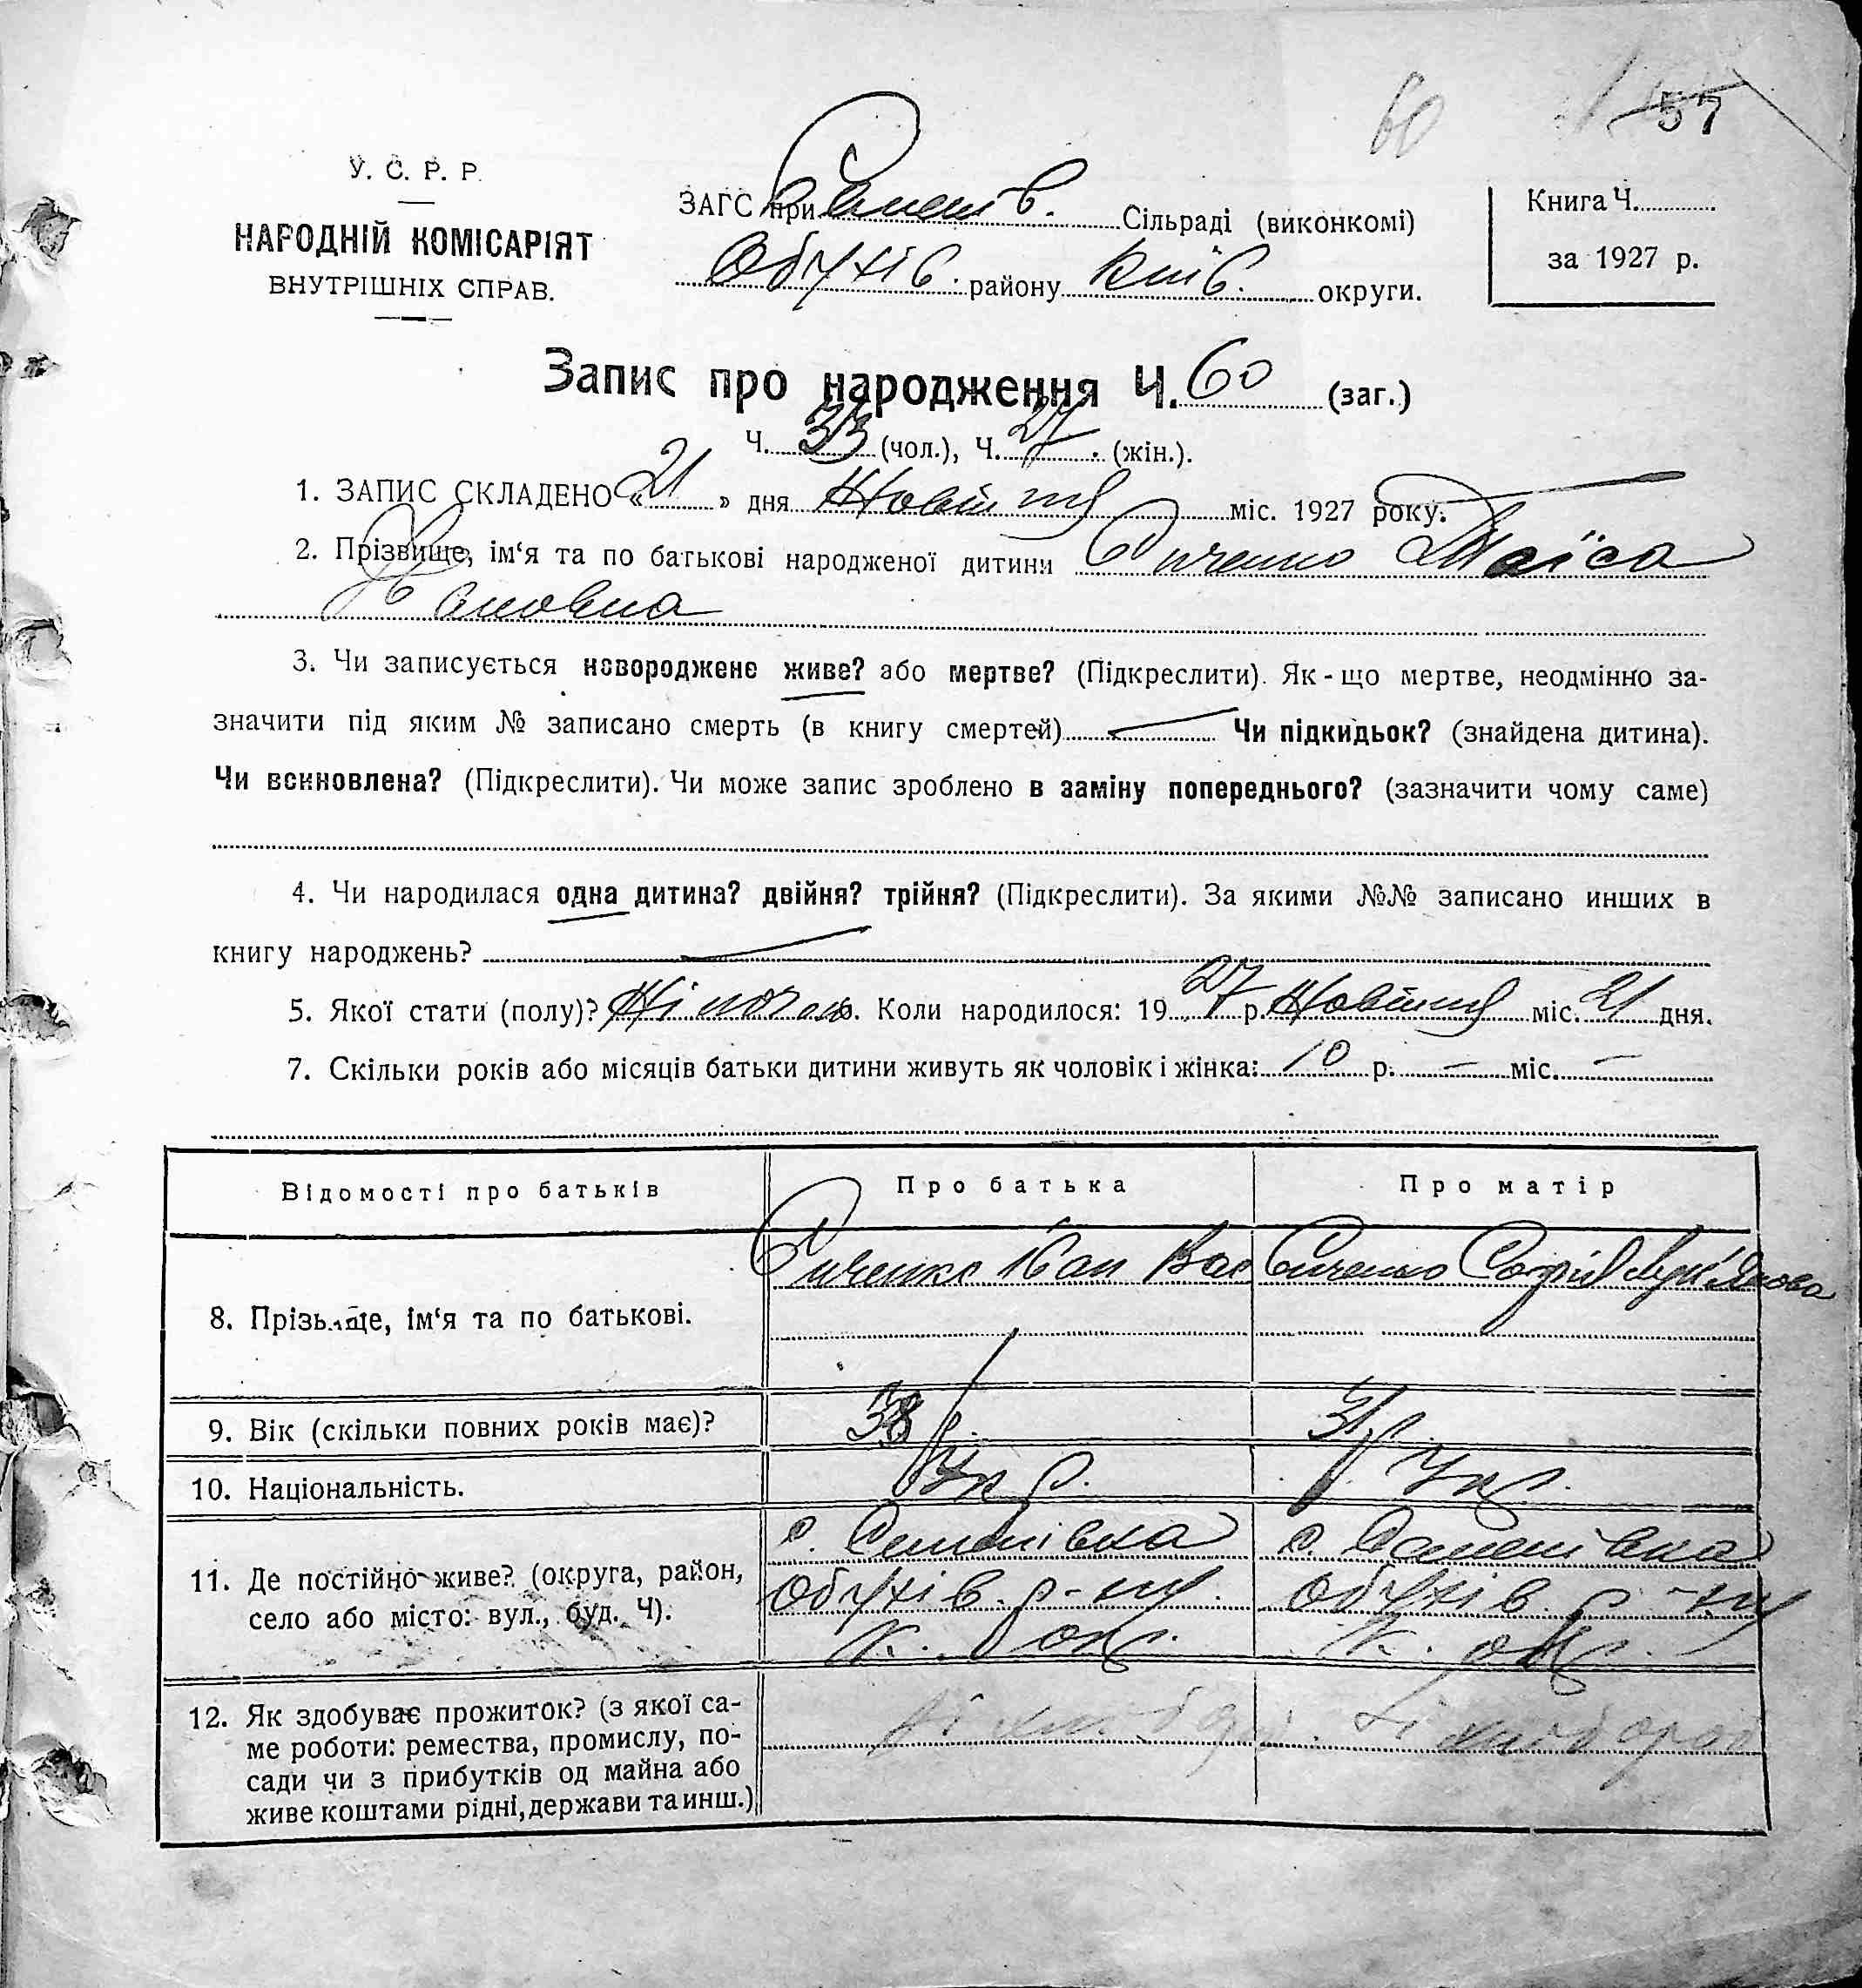 60
57
У. С. Р. Р.
НАРОДНІЙ КОМІСАРІЯТ
ВНУТРІШНІХ СПРАВ.
ЗАГС при Сільраді (виконкомі)
Обухів. району Київ. округи.
Книга Ч.
за 1927 р.
Запис про народження Ч. 60 (заг.)
Ч. 33 (чол.), Ч. 27. (жін.).
1. ЗАПИС СКЛАДЕНО «21» дня Жовтня міс. 1927 року.
2. Прізвище, ім‘я та по батькові народженої дитини Таїса
Івановна
3. Чи записується новороджене живе? або мертве? (Підкреслити). Як-що мертве, неодмінно за-
значити під яким № записано смерть (в книгу смертей) Чи підкидьок? (знайдена дитина).
Чи всиновлена? (Підкреслити). Чи може запис зроблено в заміну попереднього? (зазначити чому саме)
4. Чи народилася одна дитина? двійня? трійня? (Підкреслити). За якими №№ записано инших в
книгу народжень?
5. Якої стати (полу)? Жіночої. Коли народилося: 1927 р. Жовтня міс. 21 дня.
7. Скільки років або місяців батьки дитини живуть як чоловік і жінка: 10 р. — міс. —
Відомості про батьків Про батька Про матір
8. Прізвище, ім‘я та по батькові. Іван Вас Софія Лук'янова
9. Вік (скільки повних років має)? 38 р. 31 р.
10. Національність. Укр. Укр.
11. Де постійно живе? (округа, район, село або місто: вул., буд. Ч).
с. с.
Обухів. р-ну Обухів. р-ну
К. окр. К. окр.
12. Як здобуває прожиток? (з якої са-
ме роботи: ремества, промислу, по-
сади чи з прибутків од майна або
живе коштами рідні, держави та инш.)